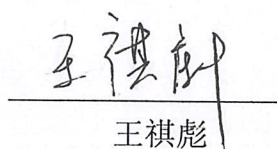 王祺彪
王祺彪